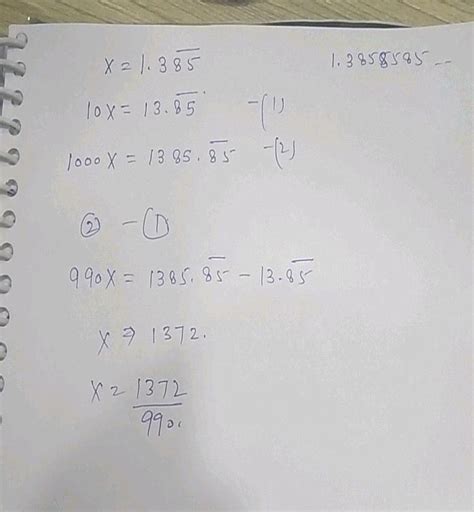 x = 1.38̅5̅ 1.3858585--
10x = 13.8̅5̅ -(1)
1000x = 1385.8̅5̅ -(2)
② - ①
990x = 1385.8̅5̅ - 13.8̅5̅
x ⇒ 1372.
x = 1372/990.